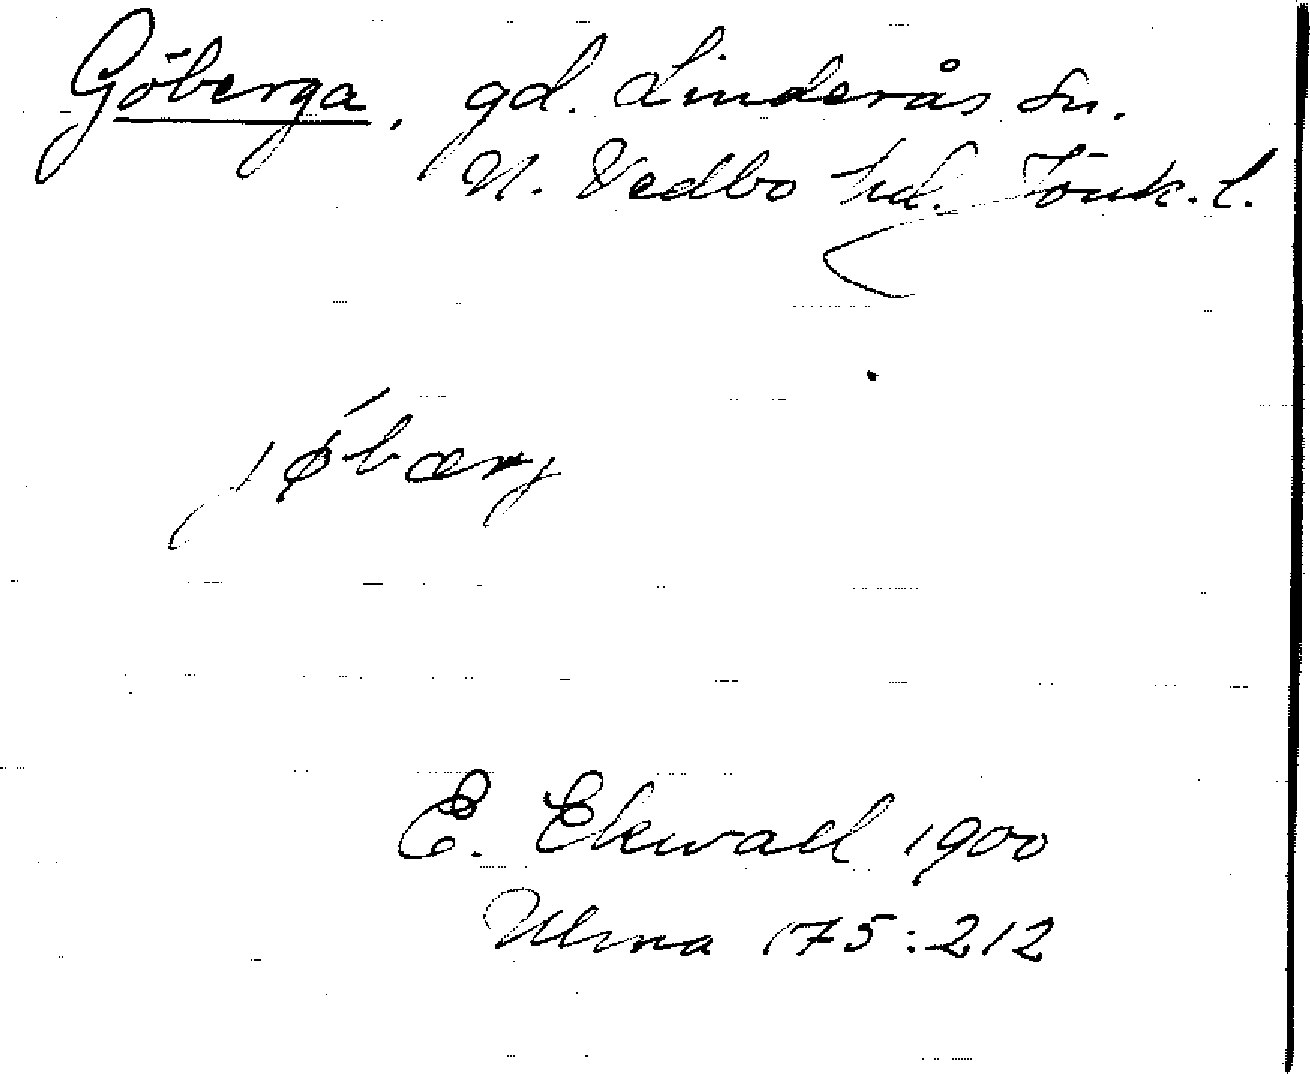 Göberga, gd. Linderås sn.
N. Vedbo hd. Jönk. l.
jǿbærj
E. Ekwall 1900
Ulma 175:212